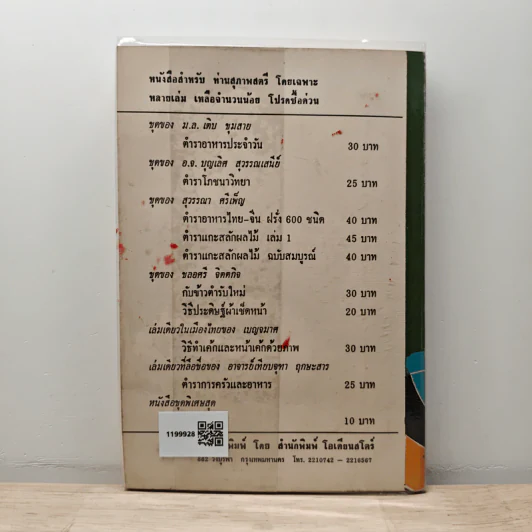 หนังสือสำหรับ ท่านสุภาพสตรี โดยเฉพาะ
หลายเล่ม เหลือจำนวนน้อย โปรดซื้อด่วน
ชุดของ ม.ล. เติบ ชุมสาย
ตำราอาหารประจำวัน 30 บาท
ชุดของ อ.จ. บุญเลิศ สุวรรณเสนีย์
ตำราโภชนาวิทยา 25 บาท
ชุดของ สุวรรณา ศรีเพ็ญ
ตำราอาหารไทย-จีน ฝรั่ง 600 ชนิด 40 บาท
ตำราแกะสลักผลไม้ เล่ม 1 45 บาท
ตำราแกะสลักผลไม้ ฉบับสมบูรณ์ 40 บาท
ชุดของ ชลอศรี จิตตกิจ
กับข้าวตำรับใหม่ 30 บาท
วิธีประดิษฐ์ผ้าเช็ดหน้า 20 บาท
เล่มเดียวในเมืองไทยของ เบญจมาศ
วิธีทำเค้กและหน้าเค้กด้วยภาพ 30 บาท
เล่มเดียวที่ลือชื่อของ อาจารย์เทียบจุฑา ฤกษะสาร
ตำราการครัวและอาหาร 25 บาท
หนังสือชุดพิเศษสุด
10 บาท
1199928
พิมพ์ โดย สำนักพิมพ์ โอเดียนสโตร์
วังบูรพา กรุงเทพมหานคร โทร. 2210742 - 2216567